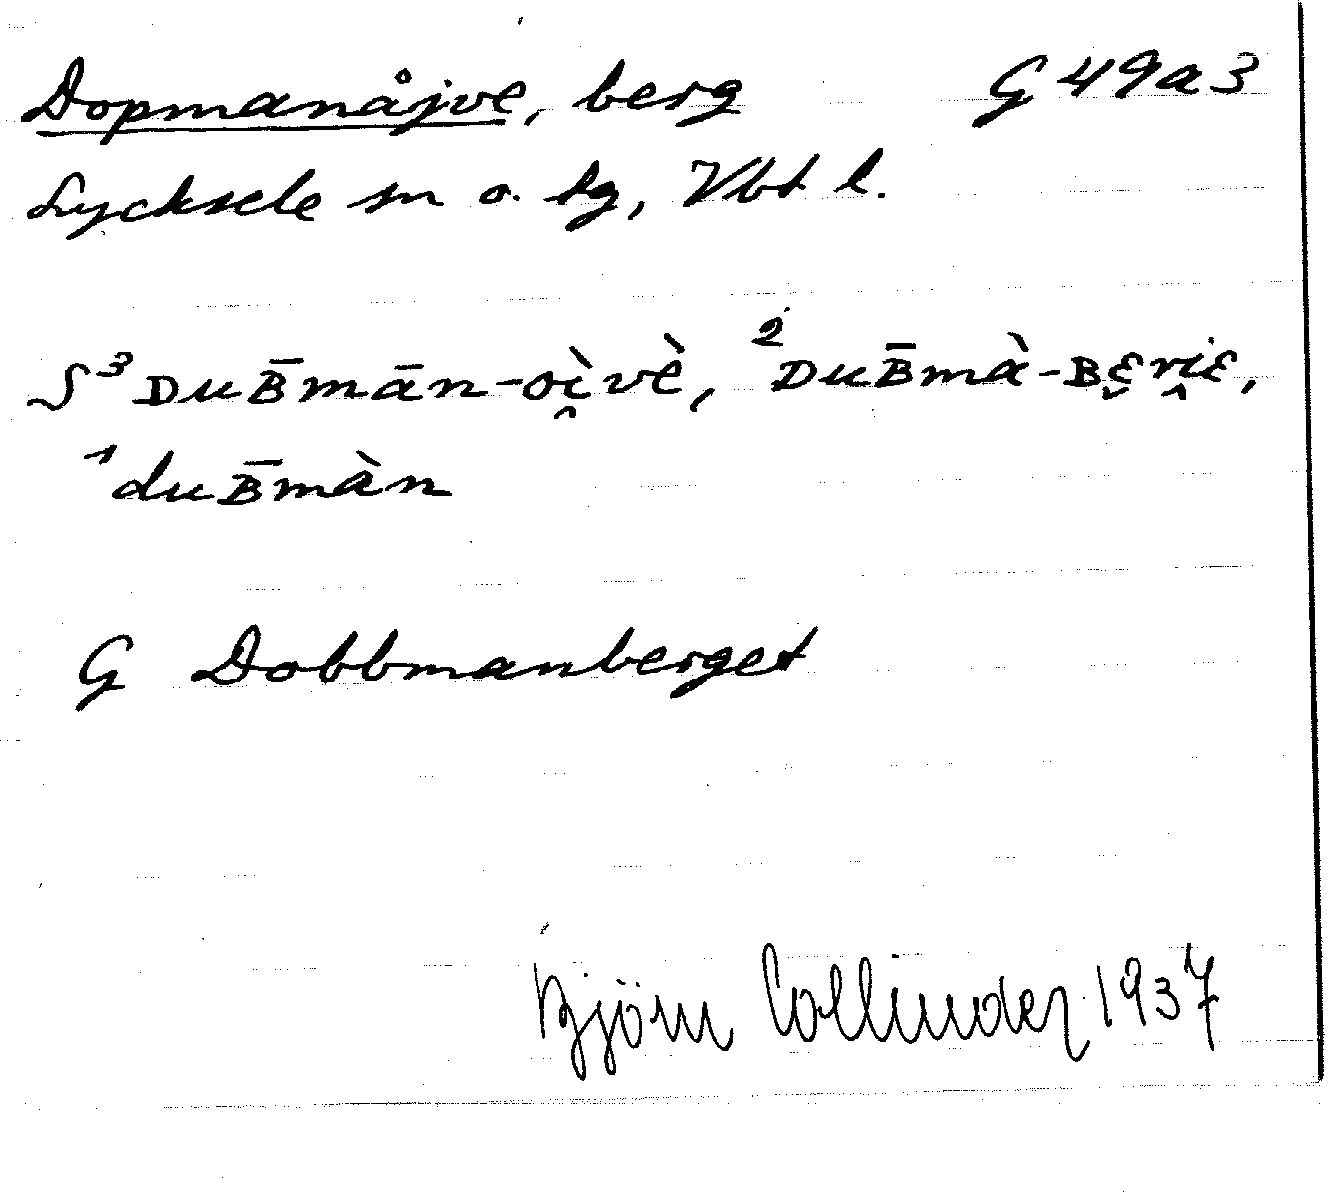 Dopmanåjve, berg G 49a3
Lycksele sn o. lg, Vbt l.
S ³ᴅuʙ̄mān-oì̯vè, ²ᴅuʙ̄mà-ʙɛ̬ri̭ɛ,
¹duʙ̄màn
G Dobbmanberget
Björn Collinder 1937